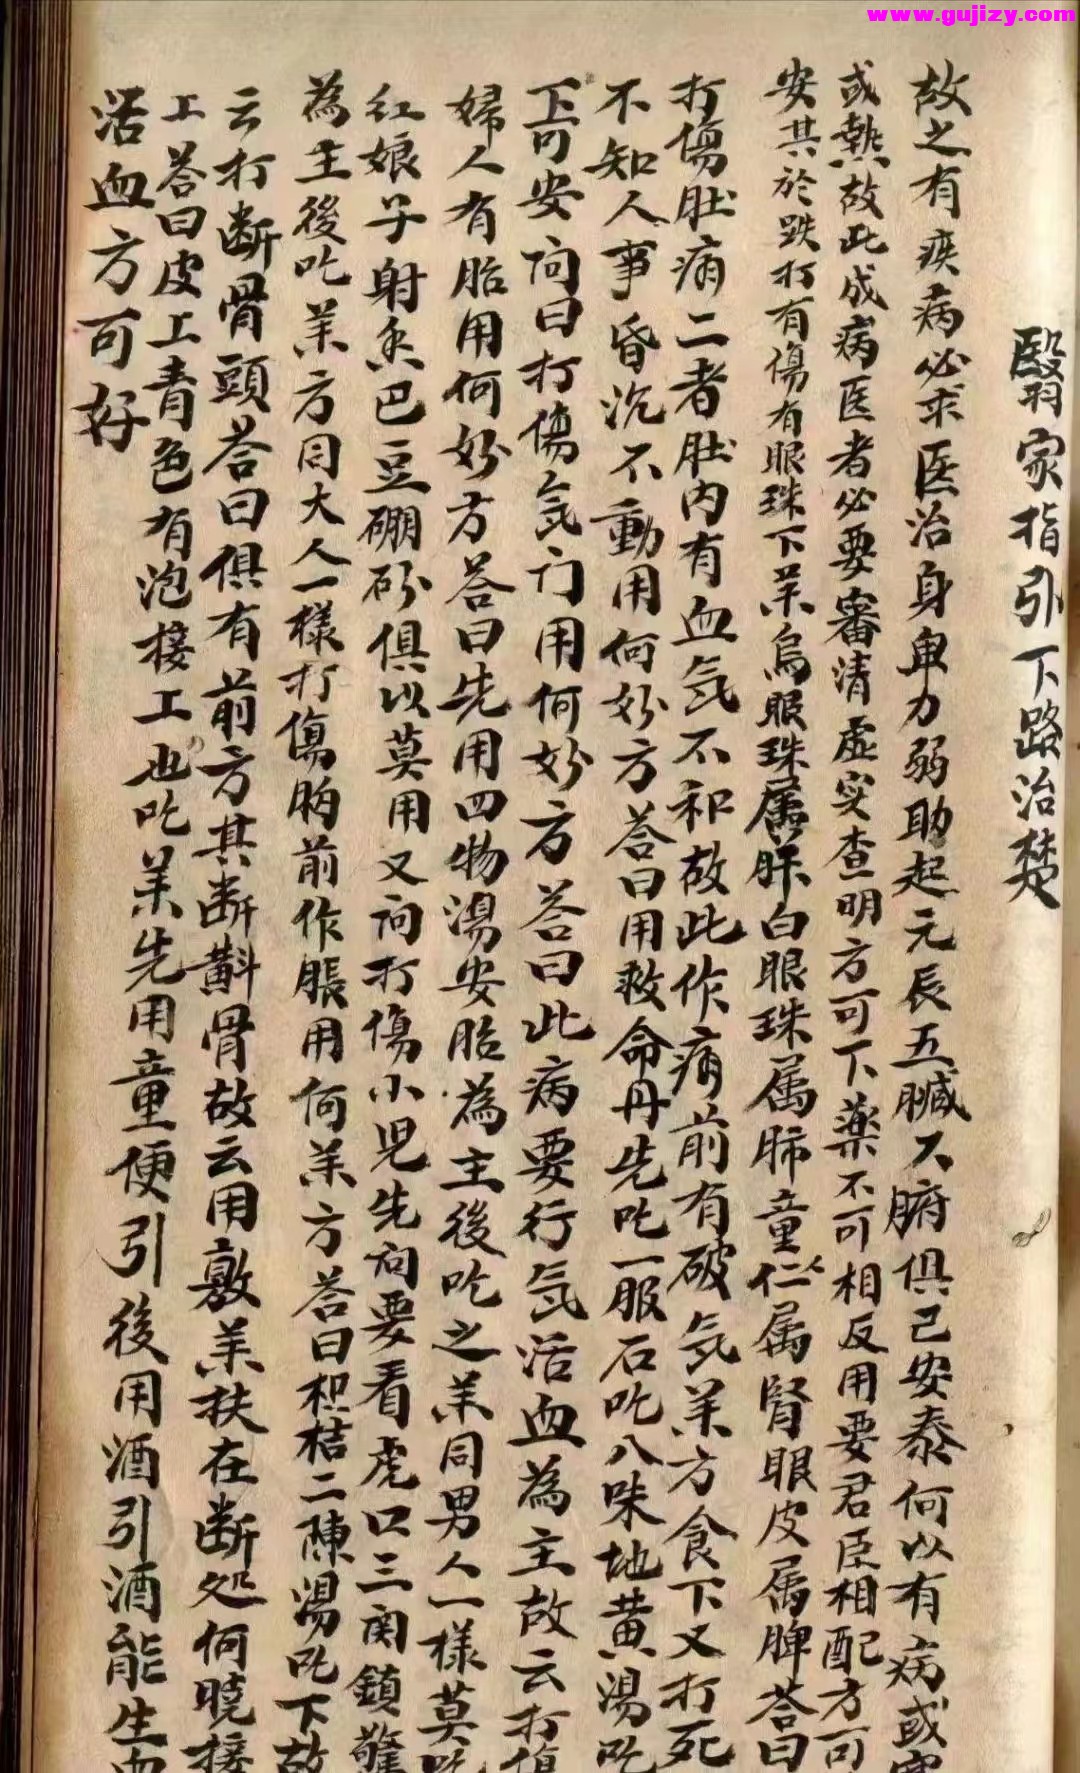 www.gujizy.com
翳家指引下路治楚
故之有疾病必求医治身卑力弱助起元辰五臟六腑俱己安泰何以有病或寒
或熱故此成病医者必要審清虛实查明方可下藥不可相反用要君臣相配方可
安其於跌打有傷有眼珠下羔烏眼珠属肝白眼珠属肺童仁属腎眼皮属脾荅曰
打傷肚痛二者肚内有血氕不和故此作痛前有破氕羔方食下又打死
不知人事昏沉不動用何妙方荅曰用救命丹先吃一服石吃八味地黄湯吃
下可安问曰打傷氕门用何妙方荅曰此病要行氕活血為主故云打傷
婦人有胎用何妙方荅曰先用四物湯安胎為主後吃之羔同男人一樣莫吃
红娘子射香巴豆硼砂俱以莫用又问打傷小児先问要看虎口三関鎮驚
為主後吃羔方同大人一樣打傷胸前作脹用何羔方荅曰枳桔二陳湯吃下故
云打断骨頭荅曰俱有前方其断斢骨故云用敷羔扶在断処何曉接
工荅曰皮工青色有泡接工也吃羔先用童便引後用酒引酒能生血
活血方可好